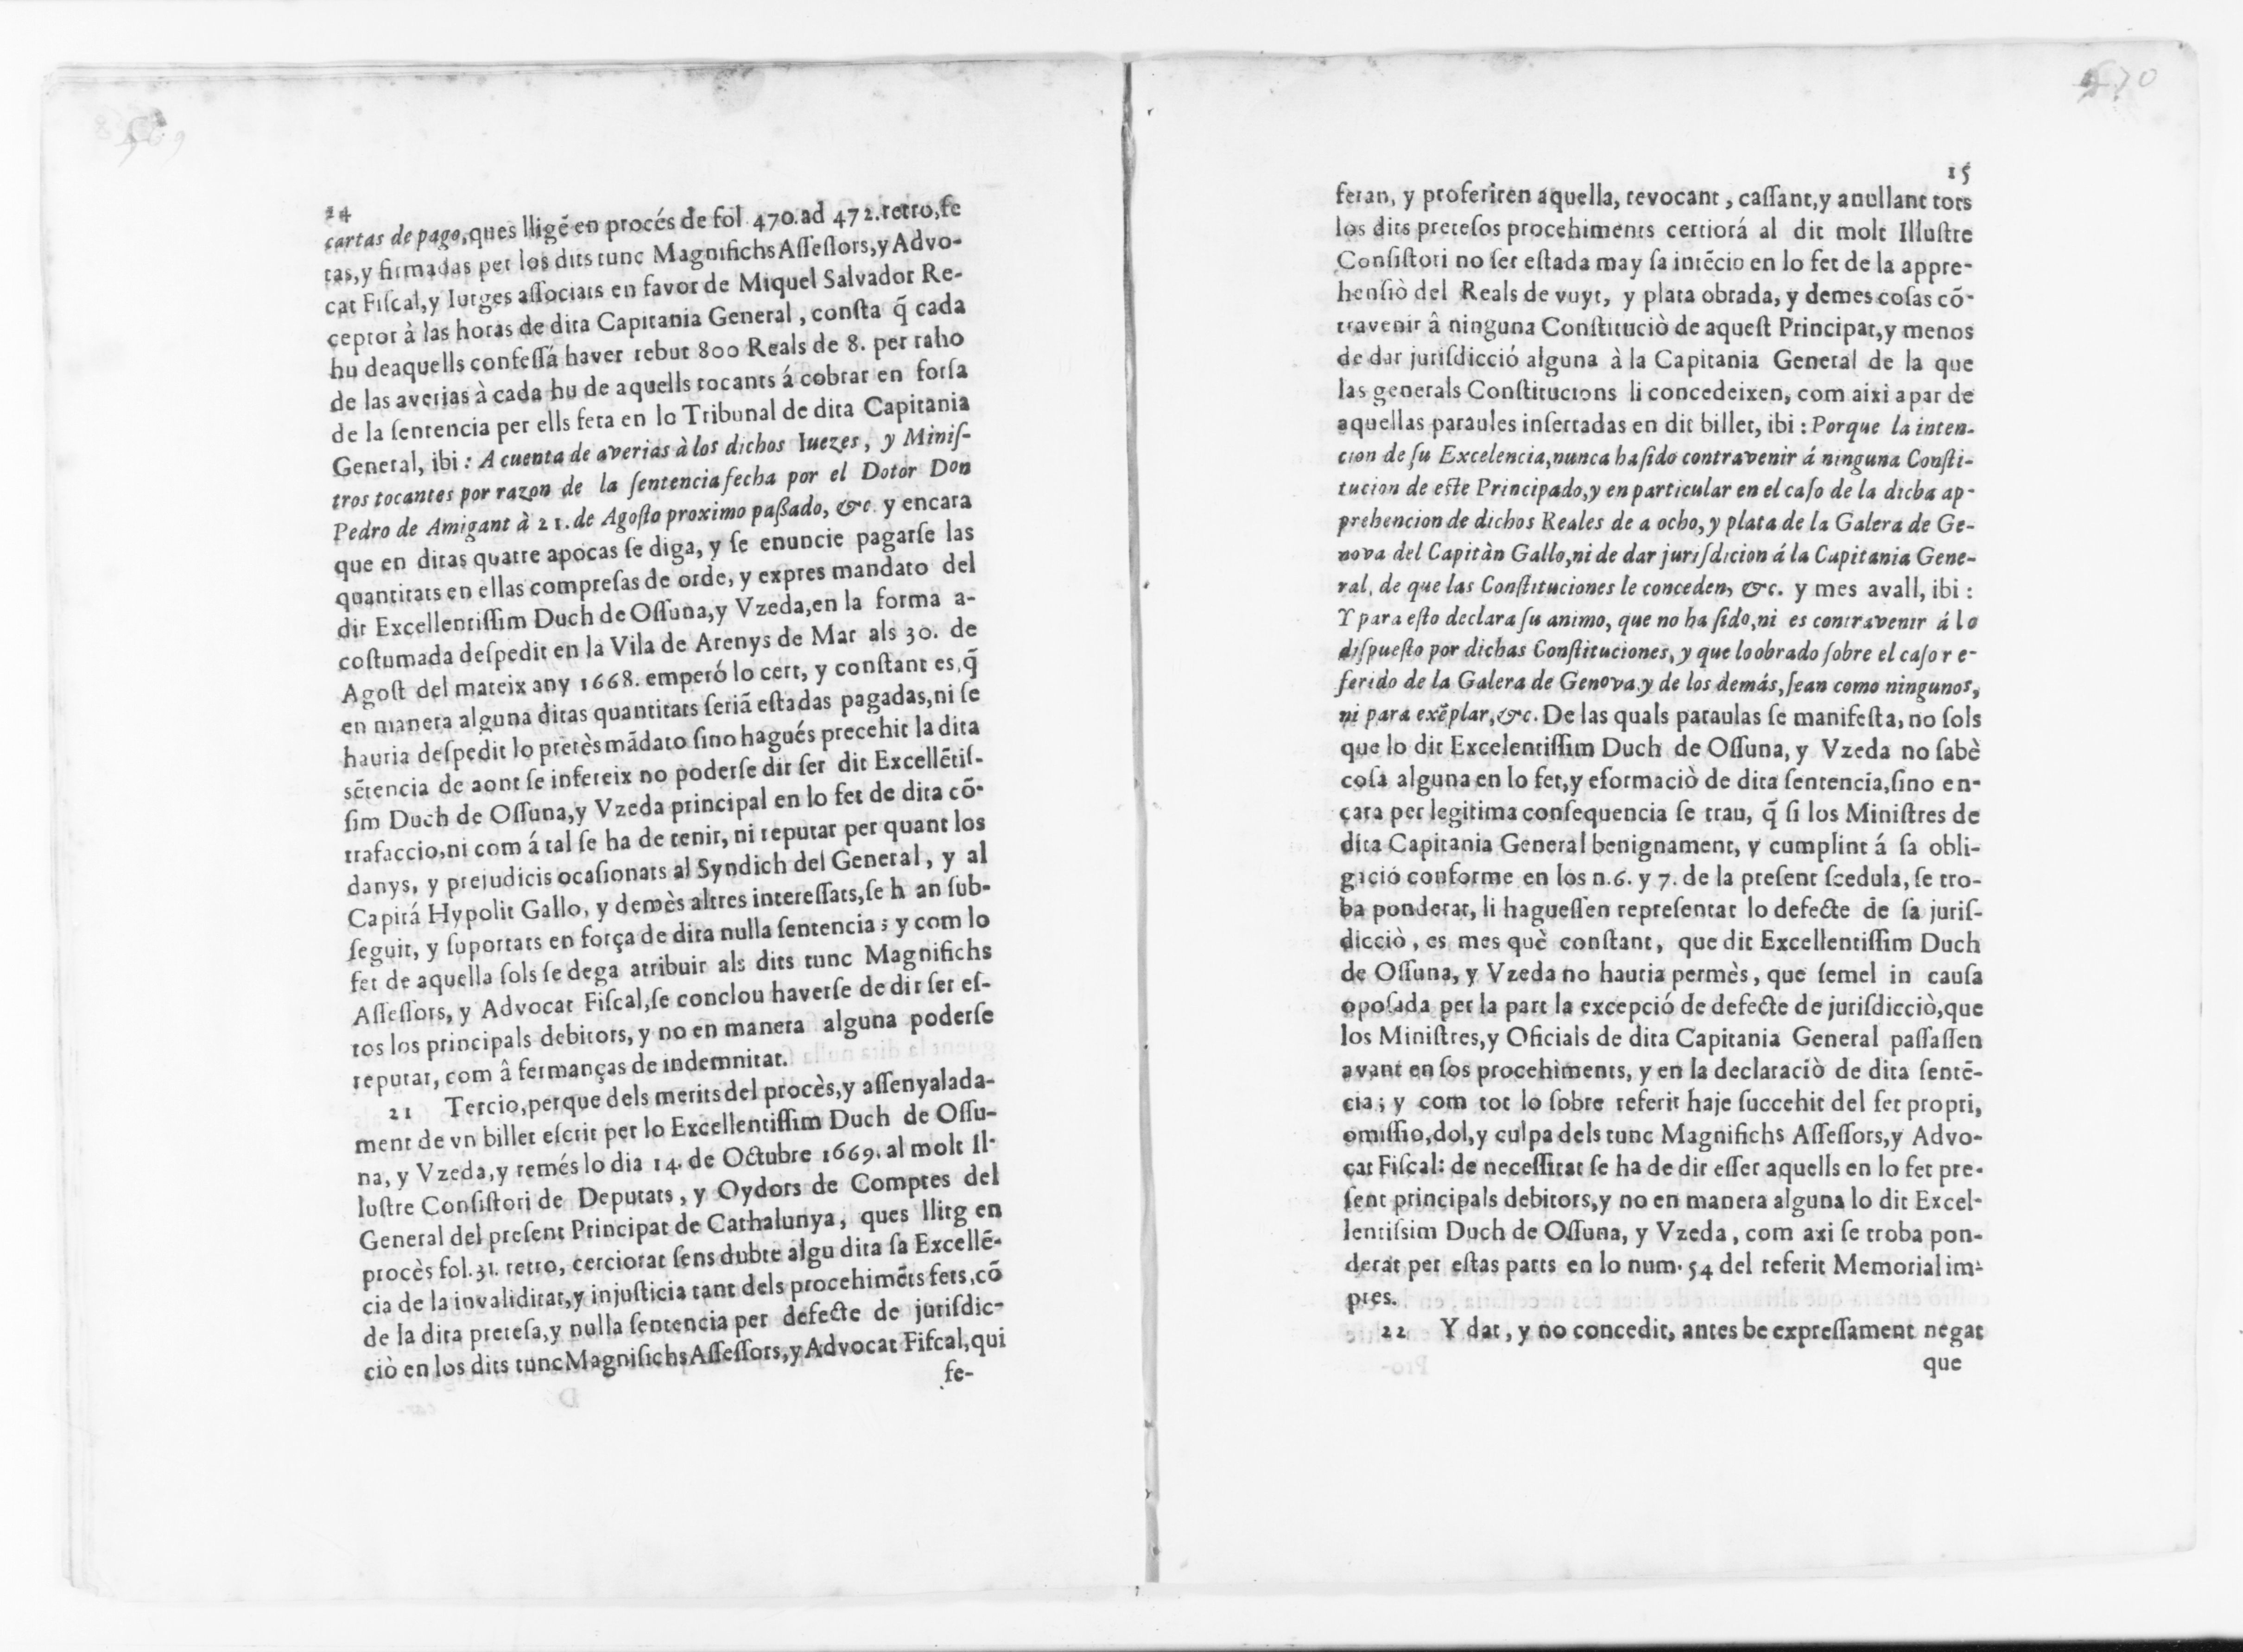 14
cartas de pago, ques lligē en procés de fol 470. ad 472. retro, fe
tas, y firmadas per los dits tunc Magnifichs Aſſeſſors, y Advo-
cat Fiſcal, y Iutges aſſociats en favor de Miquel Salvador Re-
ceptor à las horas de dita Capitania General, conſta q̃ cada
hu de aquells confeſſá haver rebut 800 Reals de 8. per raho
de las averias à cada hu de aquells tocants á cobrar en forſa
de la ſentencia per ells feta en lo Tribunal de dita Capitania
General, ibi: A cuenta de averias à los dichos Iuezes, y Miniſ-
tros tocantes por razon de la ſentencia fecha por el Dotor Don
Pedro de Amigant à 21. de Agoſto proximo paßado, &c. y encara
que en ditas quatre apocas ſe diga, y ſe enuncie pagarſe las
quantitats en ellas compreſas de orde, y expres mandato del
dit Excellentiſſim Duch de Oſſuna, y Vzeda, en la forma a-
coſtumada deſpedit en la Vila de Arenys de Mar als 30. de
Agoſt del mateix any 1668. emperó lo cert, y conſtant es, q̃
en manera alguna ditas quantitats ſeriā eſtadas pagadas, ni ſe
hauria deſpedit lo pretès mādato ſino hagués precehit la dita
sētencia de aont ſe infereix no poderſe dir ſer dit Excellētiſ-
ſim Duch de Oſſuna, y Vzeda principal en lo fet de dita cō-
trafaccio, ni com á tal ſe ha de tenir, ni reputar per quant los
danys, y prejudicis ocaſionats al Syndich del General, y al
Capitá Hypolit Gallo, y demès altres intereſſats, ſe h an ſub-
ſeguit, y ſuportats en força de dita nulla ſentencia; y com lo
fet de aquella ſols ſe dega atribuir als dits tunc Magnifichs
Aſſeſſors, y Advocat Fiſcal, ſe conclou haverſe de dir ſer eſ-
tos los principals debitors, y no en manera alguna poderſe
reputar, com â fermanças de indemnitat.
21 Tercio, perque dels merits del procès, y aſſenyalada-
ment de vn billet eſcrit per lo Excellentiſſim Duch de Oſſu-
na, y Vzeda, y remés lo dia 14. de Octubre 1669. al molt Il-
luſtre Conſiſtori de Deputats, y Oydors de Comptes del
General del preſent Principat de Cathalunya, ques llitg en
procès fol. 31. retro, cerciorat ſens dubte algu dita ſa Excellē-
cia de la invaliditat, y injuſticia tant dels procehimēts fets, cō
de la dita preteſa, y nulla ſentencia per defecte de juriſdic-
ciò en los dits tunc Magnifichs Aſſeſſors, y Advocat Fiſcal, qui
fe-
15
feran, y proferiren aquella, revocant, caſſant, y anullant tots
los dits preteſos procehiments certiorá al dit molt Illuſtre
Conſiſtori no ſer eſtada may ſa intēcio en lo fet de la appre-
henſiò del Reals de vuyt, y plata obrada, y demes coſas cō-
travenir â ninguna Conſtituciò de aqueſt Principat, y menos
de dar juriſdicció alguna à la Capitania General de la que
las generals Conſtitucions li concedeixen, com aixi apar de
aquellas paraules inſertadas en dit billet, ibi: Porque la inten-
cion de ſu Excelencia, nunca ha ſido contravenir á ninguna Conſti-
tucion de eſte Principado, y en particular en el caſo de la dicha ap-
prehencion de dichos Reales de a ocho, y plata de la Galera de Ge-
nova del Capitàn Gallo, ni de dar juriſdicion á la Capitania Gene-
ral, de que las Conſtituciones le conceden, &c. y mes avall, ibi:
Y para eſto declara ſu animo, que no ha ſido, ni es contravenir á lo
diſpueſto por dichas Conſtituciones, y que lo obrado ſobre el caſo r e-
ferido de la Galera de Genova y de los demás, ſean como ningunos,
ni para exēplar, &c. De las quals paraulas ſe manifeſta, no ſols
que lo dit Excelentiſſim Duch de Oſſuna, y Vzeda no ſabè
coſa alguna en lo fet, y eformaciò de dita ſentencia, ſino en-
cara per legitima conſequencia ſe trau, q̃ ſi los Miniſtres de
dita Capitania General benignament, y cumplint á ſa obli-
gació conforme en los n. 6. y 7. de la preſent ſcedula, ſe tro-
ba ponderat, li haguеſſen repreſentat lo defecte de ſa juriſ-
dicciò, es mes què conſtant, que dit Excellentiſſim Duch
de Oſſuna, y Vzeda no hauria permès, que ſemel in cauſa
opoſada per la part la excepció de defecte de juriſdicciò, que
los Miniſtres, y Oficials de dita Capitania General paſſaſſen
avant en ſos procehiments, y en la declaraciò de dita ſentē-
cia; y com tot lo ſobre referit haje ſuccehit del fet propri,
omiſſio, dol, y culpa dels tunc Magnifichs Aſſeſſors, y Advo-
cat Fiſcal: de neceſſitat ſe ha de dir eſſer aquells en lo fet pre-
ſent principals debitors, y no en manera alguna lo dit Excel-
lentiſsim Duch de Oſſuna, y Vzeda, com axi ſe troba pon-
derat per eſtas parts en lo num. 54 del referit Memorial im-
pres.
22 Y dat, y no concedit, antes be expreſſament negat
que